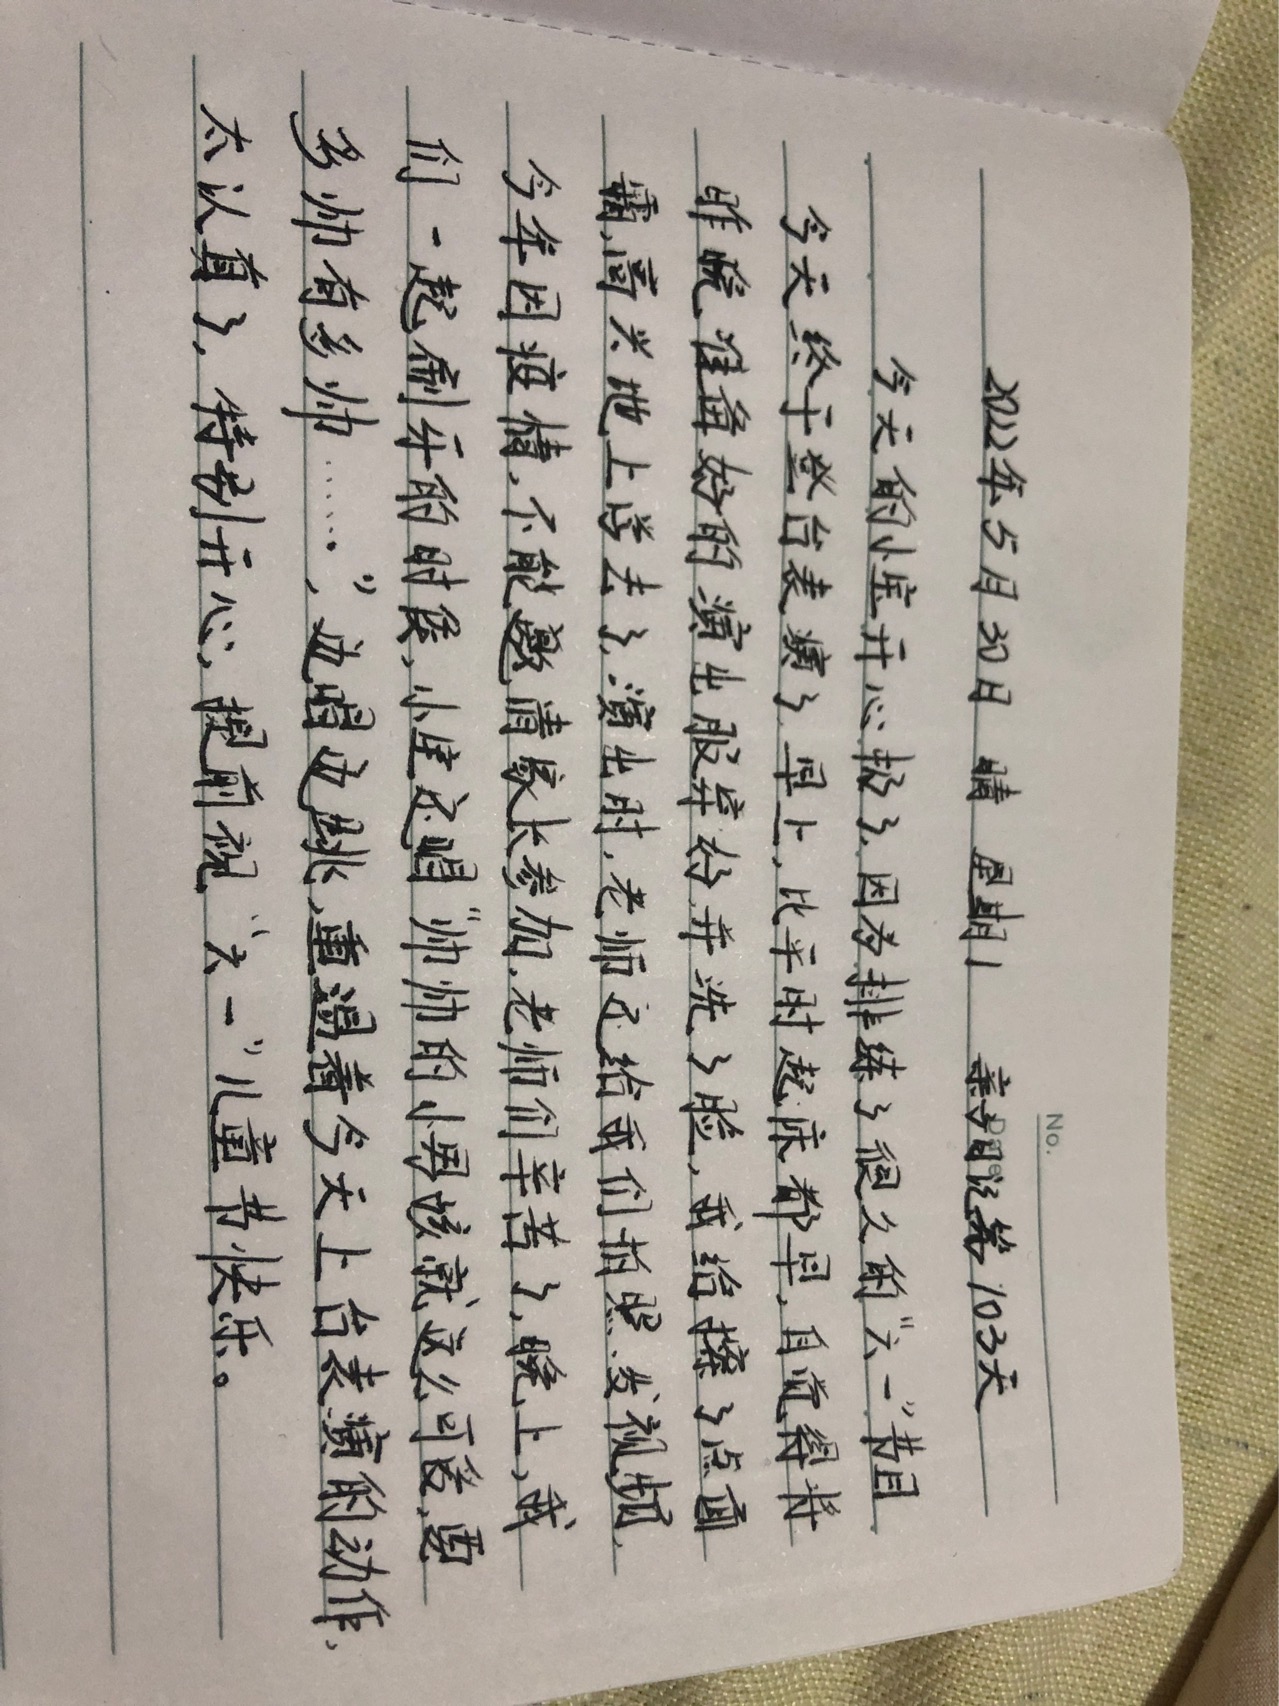 No.
Date
2022年5月30日 晴 星期1 亲子日记第103天
今天的小宝开心极了,因为排练了很久的"六一"节目
今天终于登台表演了,早上,比平时起床都早,自觉得将
昨晚准备好的演出服穿好并洗了脸,我给擦了点面
霜,高兴地上学去了,演出时,老师还给我们拍照、发视频,
今年因疫情,不能邀请家长参加,老师们辛苦了,晚上,我
们一起刷牙的时候,小宝还唱"帅帅的小男孩就这么可爱,要
多帅有多帅……",边唱边跳,重温着今天上台表演的动作,
太认真了,特别开心,提前祝"六一"儿童节快乐。